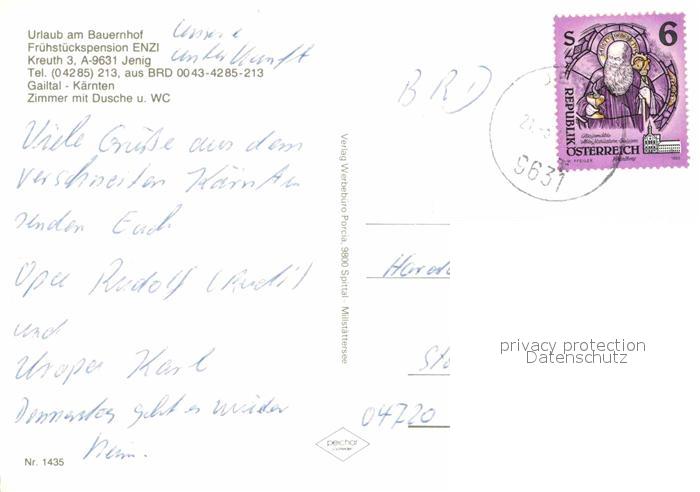 Urlaub am Bauernhof
Frühstückspension ENZI
Kreuth 3, A-9631 Jenig
Tel. (0 42 85) 213, aus BRD 00 43-42 85-213
Gailtal - Kärnten
Zimmer mit Dusche u. WC
unsere
Unterkunft
Viele Grüße aus dem
verschneiten Kärnten
senden Euch
Opa Rudolf (Rudi)
und
Uropa Karl
Donnerstag geht es wieder
heim.
Nr. 1435
Verlag Werbebüro Porcia, 9800 Spittal - Millstättersee
BRD
S 6
REPUBLIK
ÖSTERREICH
9631
Harald
04720
privacy protection
Datenschutz